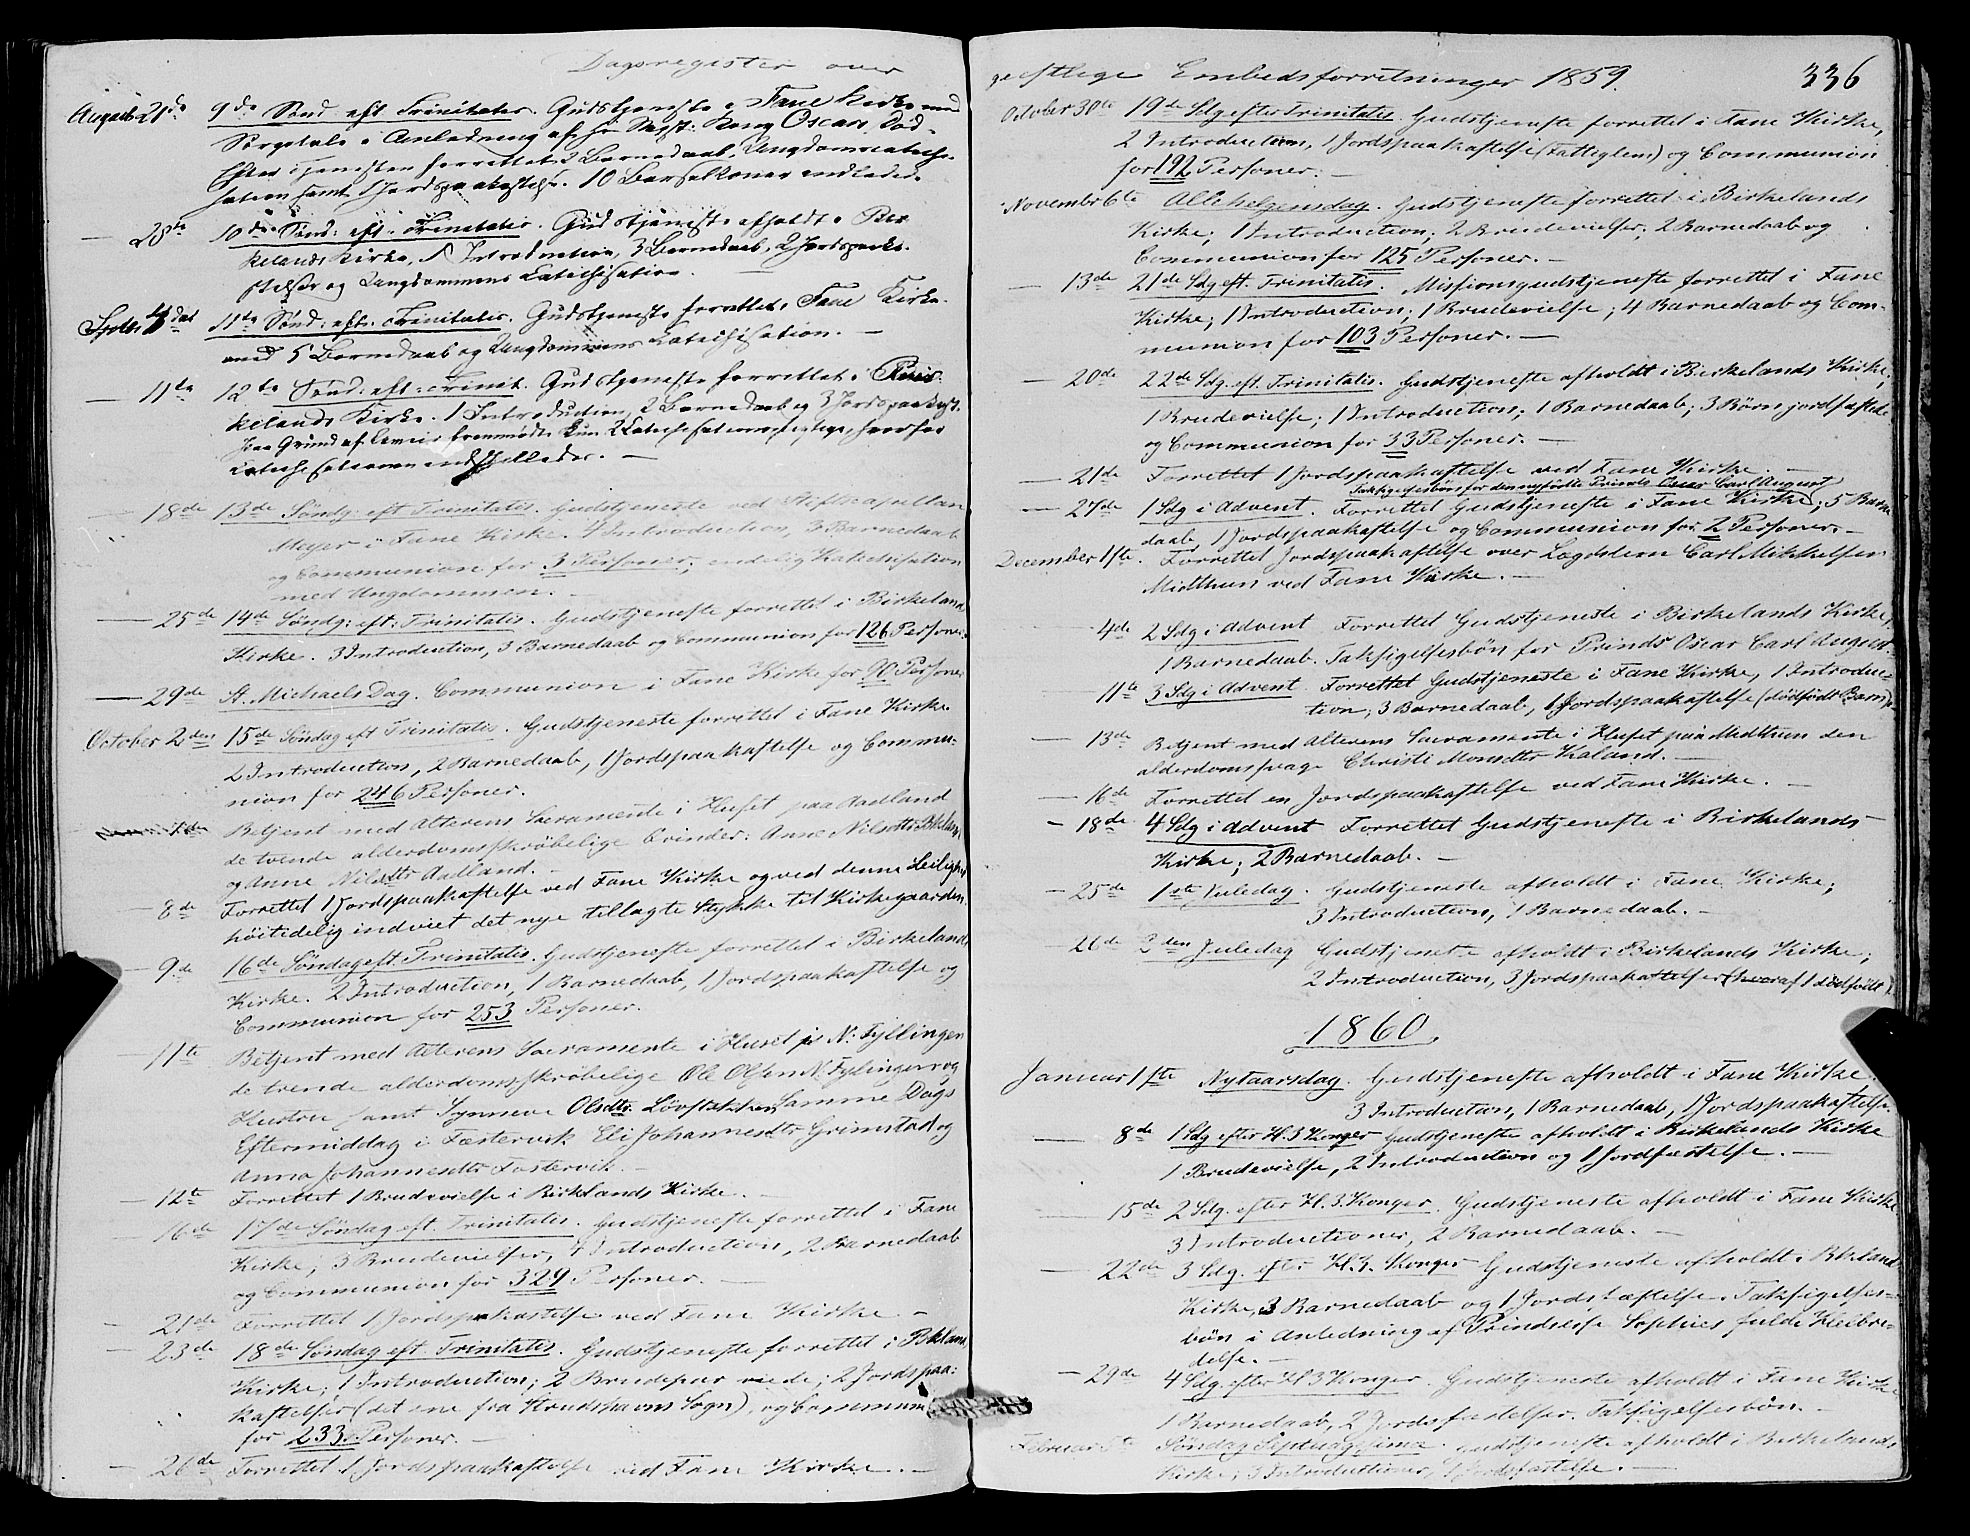 Dagsregister over
August 21de 9de Sønd. eft. Trinitatis. Gudstjeneste i Fane Kirke med
Sørgetale i Anledning af Kong Oscars Død.
Efter Tjenesten forrettet 2 Barnedaab, Ungdommscateche-
sation samt 1 Jordspaakastelse. 10 Barselkoner indledede.
— 28de 10de Sønd. eft. Trinitatis. Gudstjeneste afholdt i Bir
kelands Kirke, 5 Introduction, 3 Barnedaab, 2 Jordspaaka-
stelser og Ungdommens Catechisation.
Septr. 4de 11te Sønd. eft. Trinitatis. Gudstjeneste forrettet i Fane Kirke
med 5 Barnedaab og Ungdommens Catechisation. —
— 11te 12te Sønd. eft. Trinit. Gudstjeneste forrettet i Bir-
kelands Kirke. 1 Introduction, 2 Barnedaab og 3 Jordspaakast.
Paa Grund af fremmødte kun 2 Catechisationspligtige, hvorfor
Catechisationen indstilledes. —
— 18de 13de Søndg. eft. Trinitatis. Gudstjeneste ved Stiftscapellan
Meyer i Fane Kirke. 4 Introduction, 3 Barnedaab
og Communion for 3 Personer; endelig Katechisation
med Ungdommen. —
— 25de 14de Søndg: eft: Trinitatis. Gudstjeneste forrettet i Birkeland
Kirke. 3 Introduction, 3 Barnedaab og Communion for 126 Personer.
— 29de St. Michaels Dag. Communion i Fane Kirke for 90 Persone
October 2den 15de Søndag eft Trinitatis. Gudstjeneste forrettet i Fane Kirke
2 Introduction, 2 Barnedaab, 1 Jordspaakastelse og Commu-
nion for 246 Personer.
Betjent med Alterens Sacramente i Huset paa Aadland
de tvende alderdomsskrøbelige Qvinder: Anne Nilsdtr
og Anne Nilsdtr Aadland. —
— 8de Forrettet 1 Jordspaakastelse ved Fane Kirke og ved denne Leilighed
høitidelig indviet det nye tillagte Stykke til Kirkegaarden.
— 9de 16de Søndag eft. Trinitatis. Gudstjeneste forrettet i Birkelands
Kirke. 2 Introduction, 1 Barnedaab, 1 Jordspaakastelse og
Communion for 253 Personer.
— 11te Betjent med Alterens Sacramente i Huset p N: Fyllingen
de trende alderdomsskrøbelige Ole Olsen N. Fylingen og
Hustru samt Synneve Olsdtr Løvstakken, Samme Dags
Eftermiddag i Festervik Eli Johannesdtr Grimstad og
Anna Johannesdtr Festervik. —
— 12te Forrettet 1 Brudevielse i Birklands Kirke. —
— 16de 17de Søndag eft. Trinitatis. Gudstjeneste forrettet i Fane
Kirke; 3 Brudevielser, 4 Introduction, 2 Barnedaab
og Communion for 329 Personer. —
— 21de Forrettet 1 Jordspaakastelse ved Fane Kirke. —
— 23de 18de Søndag eft. Trinitatis. Gudstjeneste forrettet i Bkland
Kirke; 1 Introduction; 2 Brudepar viede; 2 Jordspaa-
kastelser (det ene fra Strudshavns Sogn), og Communion
for 233 Personer. —
— 26de Forrettet 1 Jordspaakastelse ved Fane Kirke. —
geistlige Embedsforretninger 1859. 336
October 30te 19de Sdg efter Trinitatis. Gudstjeneste forrettet i Fane Kirke,
2 Introduction, 1 Jordspaakastelse (Fattiglem) og Communion
for 192 Personer. —
November 6te Allehelgensdag. Gudstjeneste forrettet i Birkelands
Kirke; 1 Introduction; 2 Brudevielser; 2 Barnedaab og
Communion for 125 Personer. —
— 13de 21de Sdg eft. Trinitatis. Missionsgudstjeneste forrettet i Fane
Kirke; 1 Introduction; 1 Brudevielse; 4 Barnedaab og Com-
munion for 103 Personer. —
— 20de 22de Sdg. eft. Trinitatis. Gudstjeneste afholdt i Birkelands Kirke;
1 Brudevielse; 1 Introduction; 1 Barnedaab; 3 Børn jordfæstede
og Communion for 33 Personer. —
— 21de Forrettet 1 Jordspaakastelse ved Fane Kirke. —
Taksigelsesbøn for den nyfødte Prinds Oscar Carl August
— 27de 1 Sdg i Advent. Forrettet Gudstjeneste i Fane Kirke, 5 Barne
daab, 1 Jordspaakastelse og Communion for 2 Personer. —
December 1ste. Forrettet Jordspaakastelse over Lægdslem Carl Mikkelsen
Midthun ved Fane Kirke. —
4de 2 Sdg i Advent Forrettet Gudstjeneste i Birkelands Kirke,
1 Barnedaab. Taksigelsesbøn for Prinds Oscar Carl August.
— 11te 3 Sdg i Advent. Forrettet Gudstjeneste i Fane Kirke, 1 Introduc-
tion; 3 Barnedaab, 1 Jordspaakastelse (dødfødt Barn).
— 13de Betjent med Alterens Sacramente i Huset paa Midthun den
alderdomssvage Christi Monsdtr Kaland. —
— 16de Forrettet en Jordspaakastelse ved Fane Kirke. —
— 18de 4 Sdg i Advent Forrettet Gudstjeneste i Birkelands
Kirke; 2 Barnedaab. —
— 25de 1ste Juledag. Gudstjeneste afholdt i Fane Kirke;
3 Introduction, 1 Barnedaab. —
— 26de 2den Juledag Gudstjeneste afholdt i Birkelands Kirke;
2 Introduction, 3 Jordspaakastelser (hvoraf 1 dødfødt).
1860.
Januar 1ste Nytaarsdag. Gudstjeneste afholdt i Fane Kirke.
3 Introduction, 1 Barnedaab, 1 Jordspaakastelse.
— 8de 1 Sdg efter H. 3 Konger Gudstjeneste afholdt i Birkelands Kirke
1 Brudevielse, 2 Introduction og 1 Jordfæstelse. —
— 15de 2 Sdg. efter H. 3. Konger. Gudstjeneste afholdt i Fane Kirke
3 Introductioner, 2 Barnedaab. —
— 22de 3 Sdg. efter H. 3. Konger Gudstjeneste afholdt i Bkeland
Kirke, 3 Barnedaab og 1 Jordsfæstelse. Taksigelses-
bøn i Anledning af Prindsesse Sophies fulde Helbre-
delse. —
— 29de 4 Sdg. efter H 3 Konger. Gudstjeneste afholdt i Fane Kirke
1 Barnedaab, 2 Jordsfæstelser. Taksigelsesbøn. —
Februar 5te Søndag Septuagesima. Gudstjeneste afholdt i Birkelands
Kirke; 3 Introductioner, 1 Jordsfæstelse. —